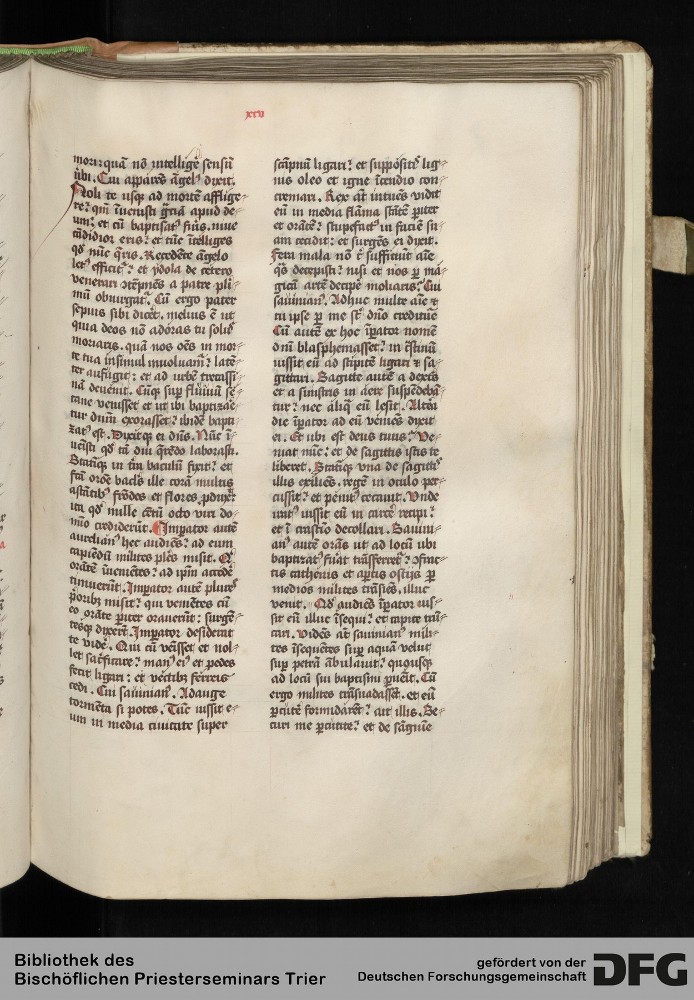 xxv
moriꝛ quā nō intelligē sensū
tibi. Cui apparēs āgelꝰ dixit.
Noli te usqꝫ ad mortē afflige⸗
re? qm̄ īuenisti grām apud de⸗
um? et cū baptisatꝰ fūis. niue
cādidior eris? et tūc ītelliges
qd̄ nūc q̄ris. Recedēte āgelo
letꝰ efficit᷑? et ydola de cetero
venerari ꝯtēpnēs a patre pli⸗
mū obiurgat᷑. Cū ergo pater
sepius sibi dicēt. melius ē ut
quia deos nō adoras tu solꝰ
moriaris. quā nos oēs in mor⸗
te tua insimul involuam̄? latē⸗
ter aufugit: et ad urbē trecassi⸗
nā deuenit. Cūqꝫ suꝑ fluuiū se⸗
cane venisset et ut ibi baptizae⸗
tur dnm̄ exorasset? ibidē bapti⸗
zatꝰ est. Dixitqꝫ ei dn̄s. Nūc ī⸗
uenisti qd̄ tā diu q̄rēdo laborasti.
Statīqꝫ in trā baculū fixit? et
fcā orōe baclꝰ ille corā multis
astātibꝰ frōdes et flores ꝓduxit?
ita qd̄ mille cētū octo viri do⸗
mīo crediderūt. Imꝑator autē
aurelianꝰ hec audiēs? ad eum
capiendū milites plēs misit. Q̄
orātē inuenētes? ad ipm̄ accedē
timuerūt. Imꝑator autē plures
p̄oribꝫ misit? qui venientes cū
eo orāte ꝑiter orauerūt: surgē⸗
tesqꝫ dixerūt. Imꝑator desiderat
te vidē. Qui cū vēisset et nol⸗
let sacrificare? manꝰ eiꝰ et pedes
fecit ligari: et vectibꝫ ferreis
cedi. Cui sauinianꝰ. Adauge
tormēta si potes. Tūc iussit e⸗
um in media ciuitate super
scāpnū ligari? et suppositꝭ lig⸗
nis oleo et igne īcendio con⸗
cremari. Rex aūt intuēs vidit
eū in media flāma stātē ꝑiter
et orātē? stupefatꝰ in faciē su⸗
am cecidit: et surgēs ei dixit.
Fera mala nō t̄ sufficiūt aīe
q̄s decepisti? nisi et nos ꝑ ma⸗
gicā artē decipe moliaris? Cui
sauinianꝰ. Adhuc multe aīe et
tu ipse ꝑ me sūt dn̄o crediture
Cū autē ex hoc īꝑator nomē
dn̄i blasphemasset? in crastinū
iussit eū ad stipitē ligari et sa⸗
gittari. Sagitte autē a dextris
et a sinistris in aere suspēdebā⸗
tur? nec aliq̄ eū lesit. Altera
die īꝑator ad eū veniēs dixit
ei. Et ubi est deus tuus? Ve⸗
niat nūc? et de sagittis istis te
liberet. Statīqꝫ una de sagittꝭ
illis exiliēs. regē in oculo per⸗
cussit? et penitꝰ cecauit. Unde
iratꝰ iussit eū in carcē recipi?
et ī crastīo decollari. Sauini⸗
anꝰ autē orās ut ad locū ubi
baptizatꝰ fūat trāsferret᷑? ꝯfrac⸗
tis cathenis et aꝑtis ostiis ꝑ
medios milites trāsiēs. illuc
venit. Qd̄ audiēs īꝑator ius⸗
sit eū illuc īsequi? et capite trū⸗
cari. Vidēs aūt sauinianꝰ mili⸗
tes īsequētes suꝑ aquā velut
suꝑ petrā ābulauit? quousqꝫ
ad locū sui baptismi ꝑuēit. Cū
ergo milites trāsuadasset. et eū
ꝑcutē formidarēt? ait illis. Se⸗
curi me ꝑcutite? et de sāguīe
Bibliothek des
Bischöflichen Priesterseminars Trier
gefördert von der
Deutschen Forschungsgemeinschaft
DFG